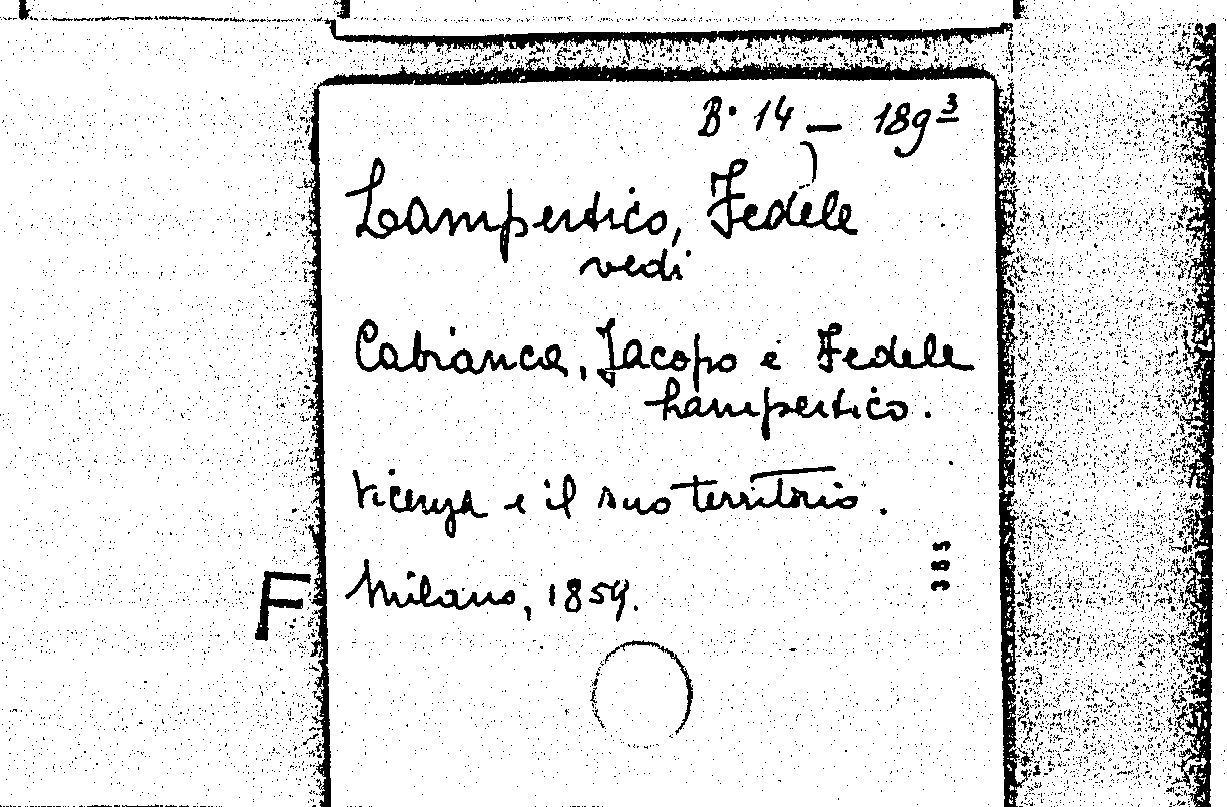 B. 14 — 189³
Lampertico, Fedele
vedi
Cabianca, Jacopo e Fedele
Lampertico.
Vicenza e il suo territorio.
Milano, 1859.
385
F